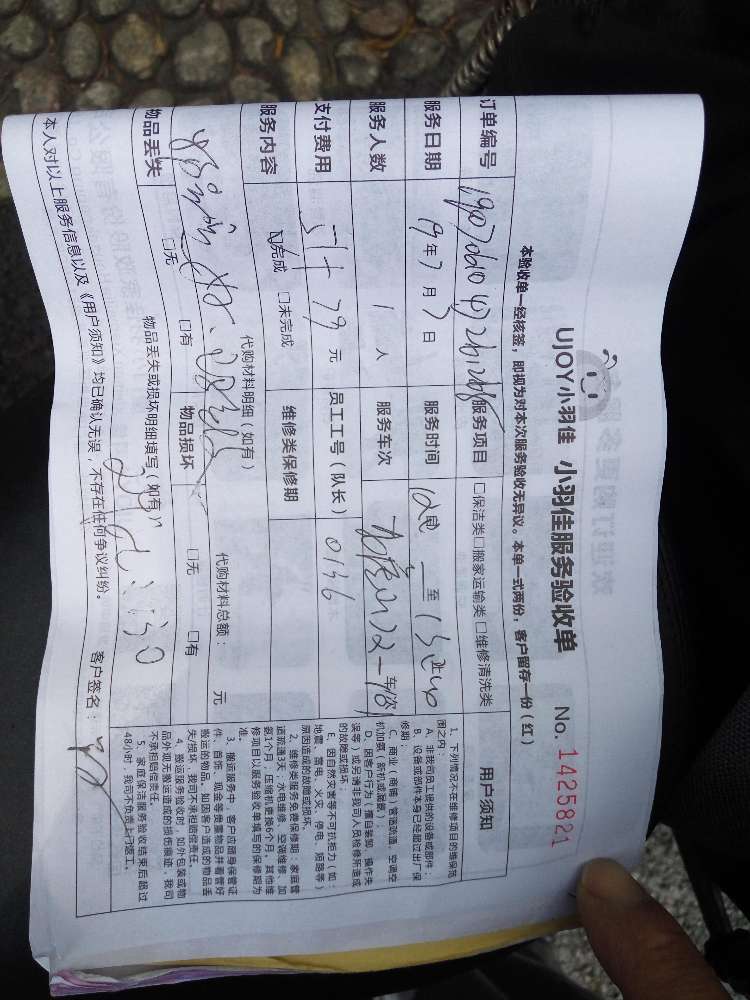 UJOY小羽佳 小羽佳服务验收单 No. 1425821
本验收单一经核签，即视为对本次服务验收无异议。本单一式两份，客户留存一份（红）
订单编号 服务项目 □保洁类□搬家运输类□维修清洗类
服务日期 19年7月 日 服务时间 至
服务人数 1 人 服务车次 车次
支付费用 元 员工工号（队长） 0136
服务内容 ☑完成 □未完成 维修类保修期
代购材料明细（如有） 代购材料总额： 元
物品丢失 □无 □有 物品损坏 □无 □有
物品丢失或损坏明细填写（如有）
本人对以上服务信息以及《用户须知》均已确认无误，不存在任何争议纠纷。 客户签名：
用户须知
1、下列情况不在维修项目的维保范
围之内：
A、非我司员工提供的设备或部件；
B、设备或部件本身已经超过出厂保
修期
C、商业（商铺）管道疏通、空调空
机加氟（新机或漏氟）；
D、因客户行为（擅自装卸、操作失
误等）或另请非我司人员检修所造成
的故障或损坏；
E、因自然灾害等不可抗拒力（如：
地震、雷电、火灾、停电、短路等）
原因造成的故障或损坏。
2、维修类服务免费保修期：家庭管
道疏通3天，水电维修、空调维修、加
氨1个月，压缩机更换6个月。其他维
修项目以服务验收单填写的保修期为
准。
3、搬运服务中，客户应随身保管证
件、首饰、现金等贵重物品并看管好
搬运的物品，如因客户造成的物品丢
失/损坏，我司不承担赔偿责任。
4、搬运服务验收时，如外包装或物
品外观无搬运造成的损伤痕迹，我司
不承担赔偿责任
5、家庭保洁服务验收结束后超过
48小时，我司不负责上门返工。